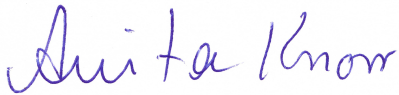 Anita Knorr